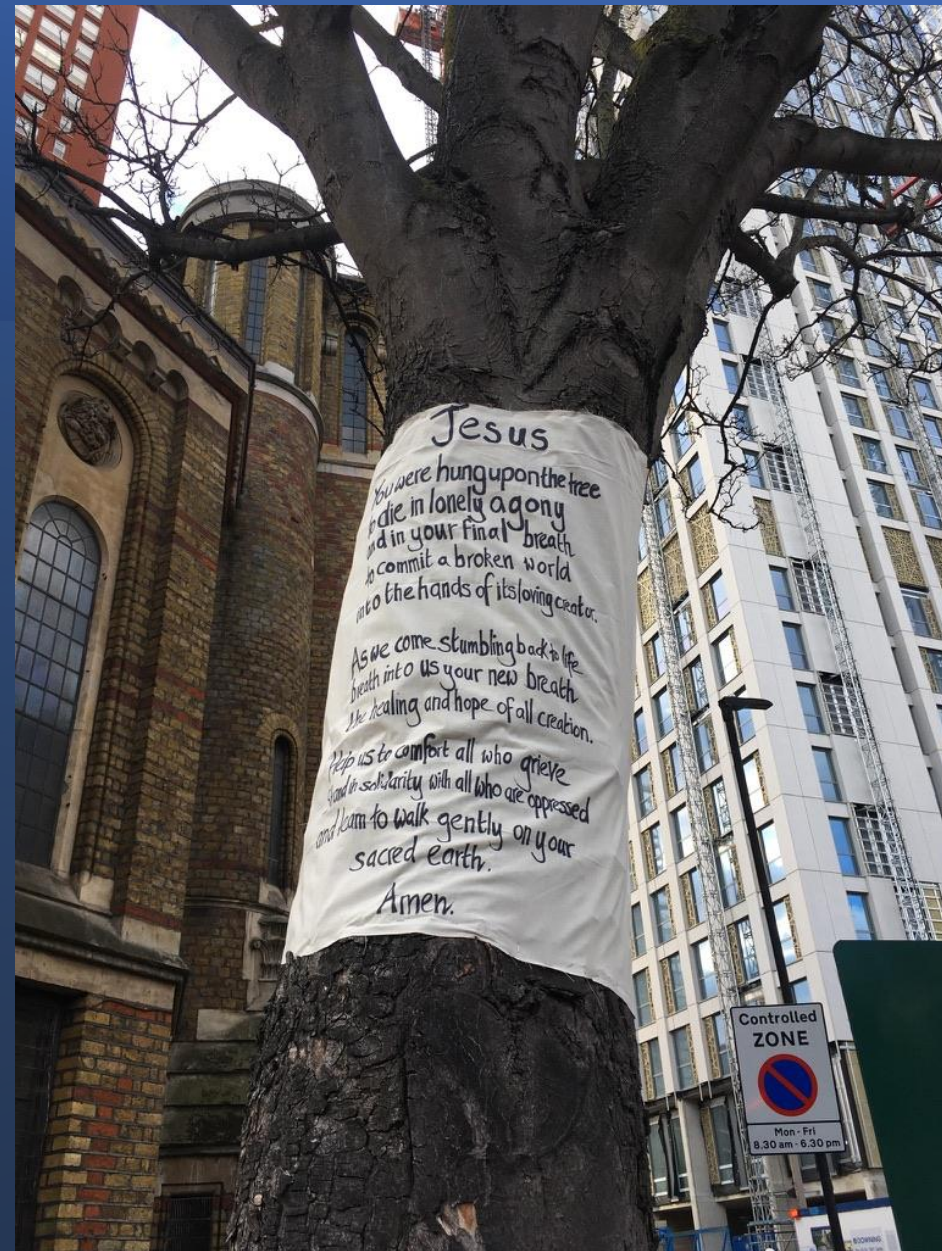 Jesus
You were hung upon the tree
to die in lonely agony
and in your final breath
to commit a broken world
into the hands of its loving creator.
As we come stumbling back to life
breath into us your new breath
the healing and hope of all creation.
Help us to comfort all who grieve
Stand in solidarity with all who are oppressed
and learn to walk gently on your
sacred earth.
Amen.
Controlled
ZONE
Mon - Fri
8.30 am - 6.30 pm